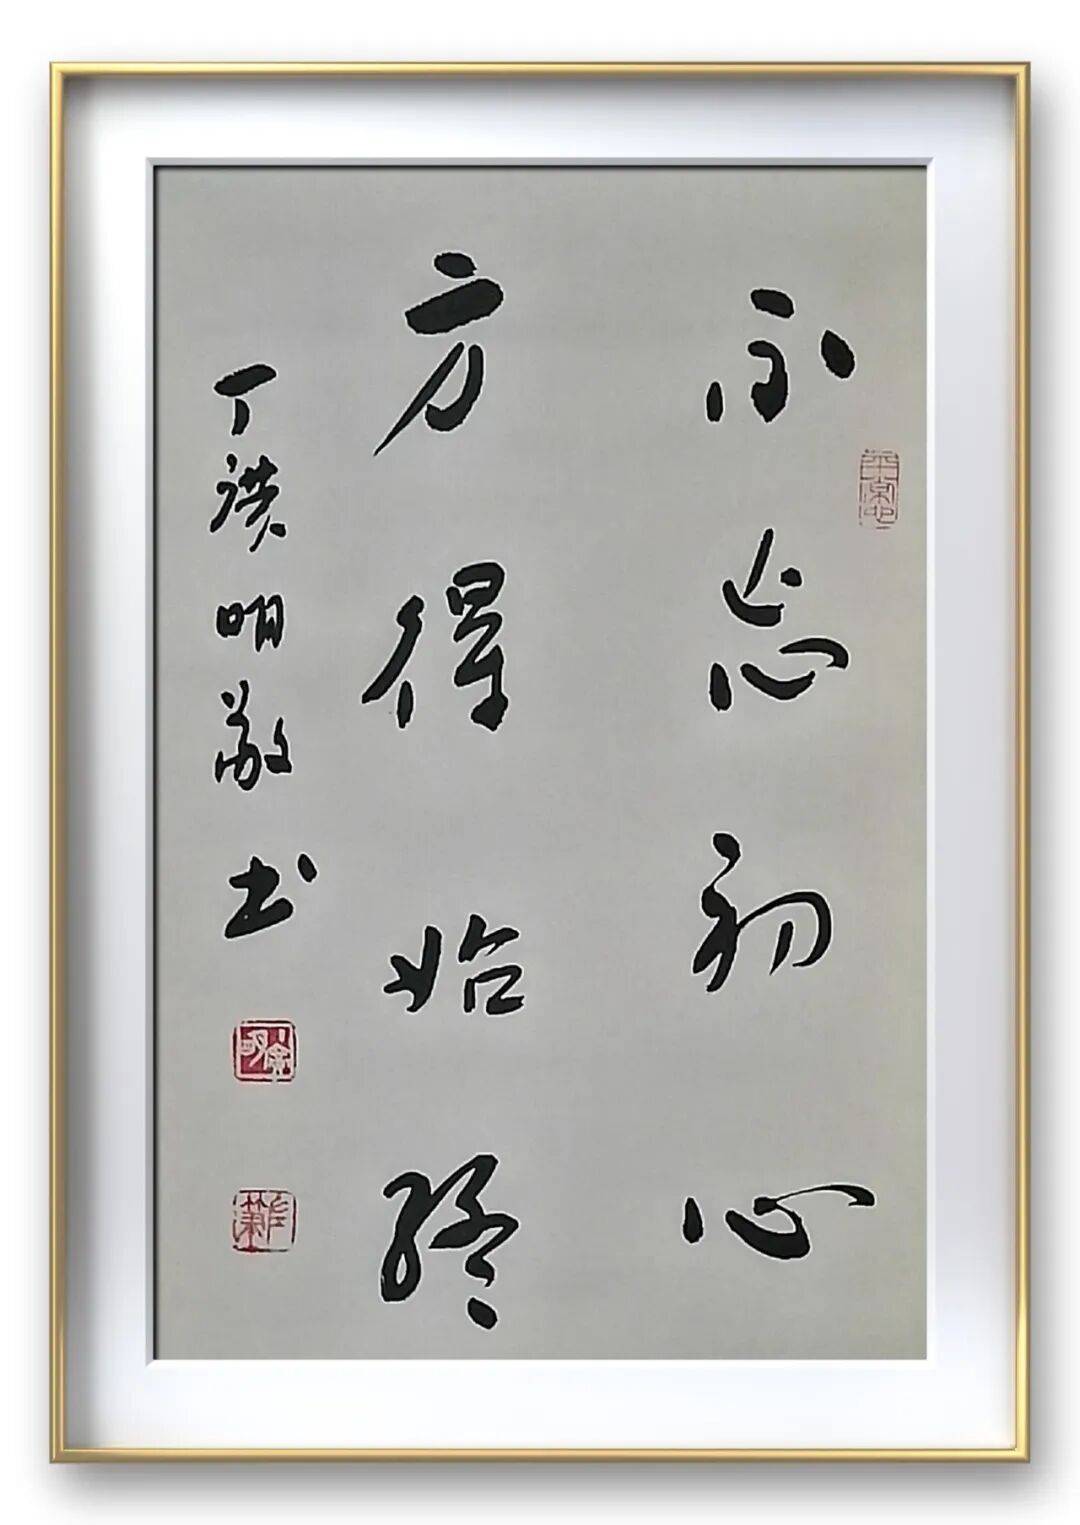 不忘初心
方得始终
丁潢明敬书